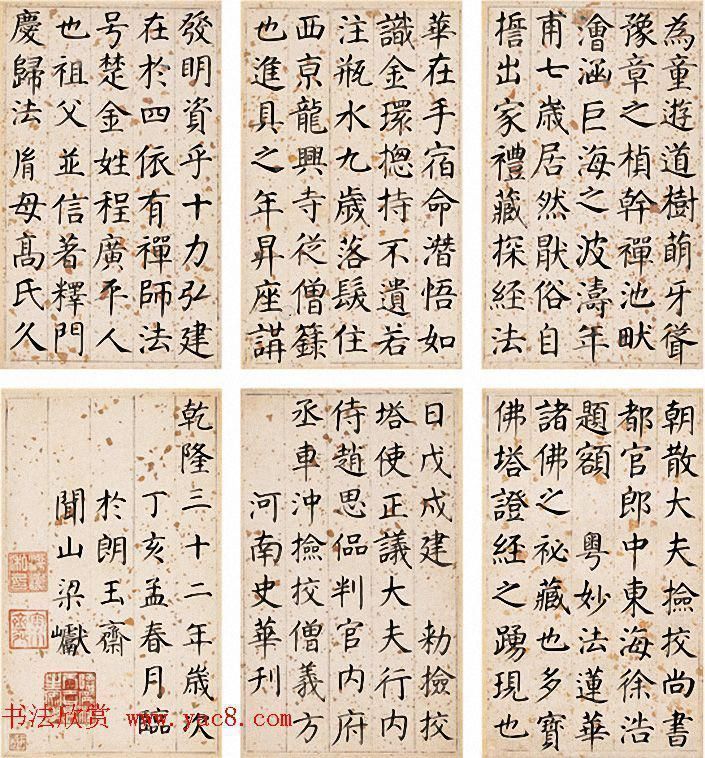 為童遊道樹萌牙聳
豫章之楨幹禪池畎
澮涵巨海之波濤年
甫七歲居然猒俗自
誓出家禮藏探經法
華在手宿命潜悟如
識金環揔持不遺若
注瓶水九歲落髮住
西京龍興寺從僧籙
也進具之年昇座講
發明資乎十力弘建
在於四依有禪師法
号楚金姓程廣平人
也祖父並信著釋門
慶歸法胤母髙氏久
朝散大夫撿挍尚書
都官郎中東海徐浩
題額 粤妙法蓮華
諸佛之祕藏也多寶
佛塔證經之踴現也
日戊戌建 勑撿挍
塔使正議大夫行内
侍趙思侶判官内府
丞車沖撿挍僧義方
河南史華刊
乾隆三十二年歲次
丁亥孟春月臨
於朗玉齋
聞山梁巘
书法欣赏 www.yac8.com